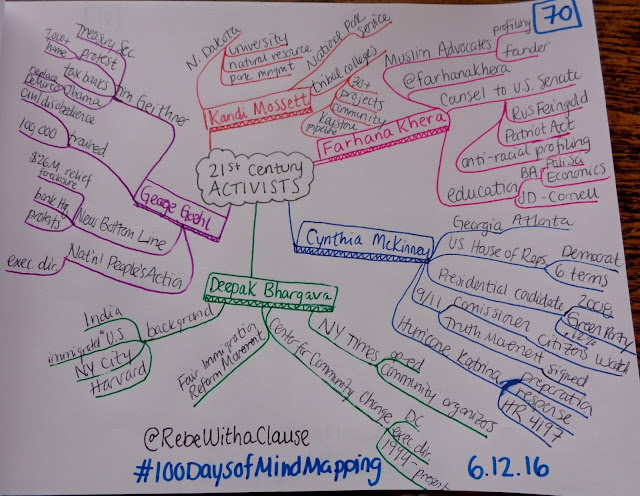 70
21st century
ACTIVISTS
Kandi Mossett
N. Dakota
University
natural resource
park mngmt
National Park
Service
tribal colleges
30+
projects
community
Keystone
pipeline
Farhana Khera
Muslim Advocates
profiling
founder
@farhanakhera
Counsel to U.S. Senate
Rus Feingold
Patriot Act
anti-racial profiling
education
BA
Poli Sci
Economics
JD-Cornell
Cynthia McKinney
Georgia
Atlanta
US House of Reps
Democrat
6 terms
Presidential candidate
2008
Green Party
.12%
9/11
Comissioner
Citizens Watch
Truth Movement
signed
Hurricane Katrina
preparation
response
HR 4197
Deepak Bhargava
NY Times
oped
Community organizers
Center for Community Change
DC
exec. dir.
1994-present
Fair Immigration
Reform Movement
background
India
immigrated U.S.
NY City
Harvard
George Goehl
Tim Geithner
Treasury Sec
home
protest
tax banks
Obama
civil disobedience
100,000
trained
$26M relief
foreclosure
New Bottom Line
bank
protests
Nat'nl People's Action
exec. dir
@RebeWithaClause
#100DaysofMindMapping
6.12.16